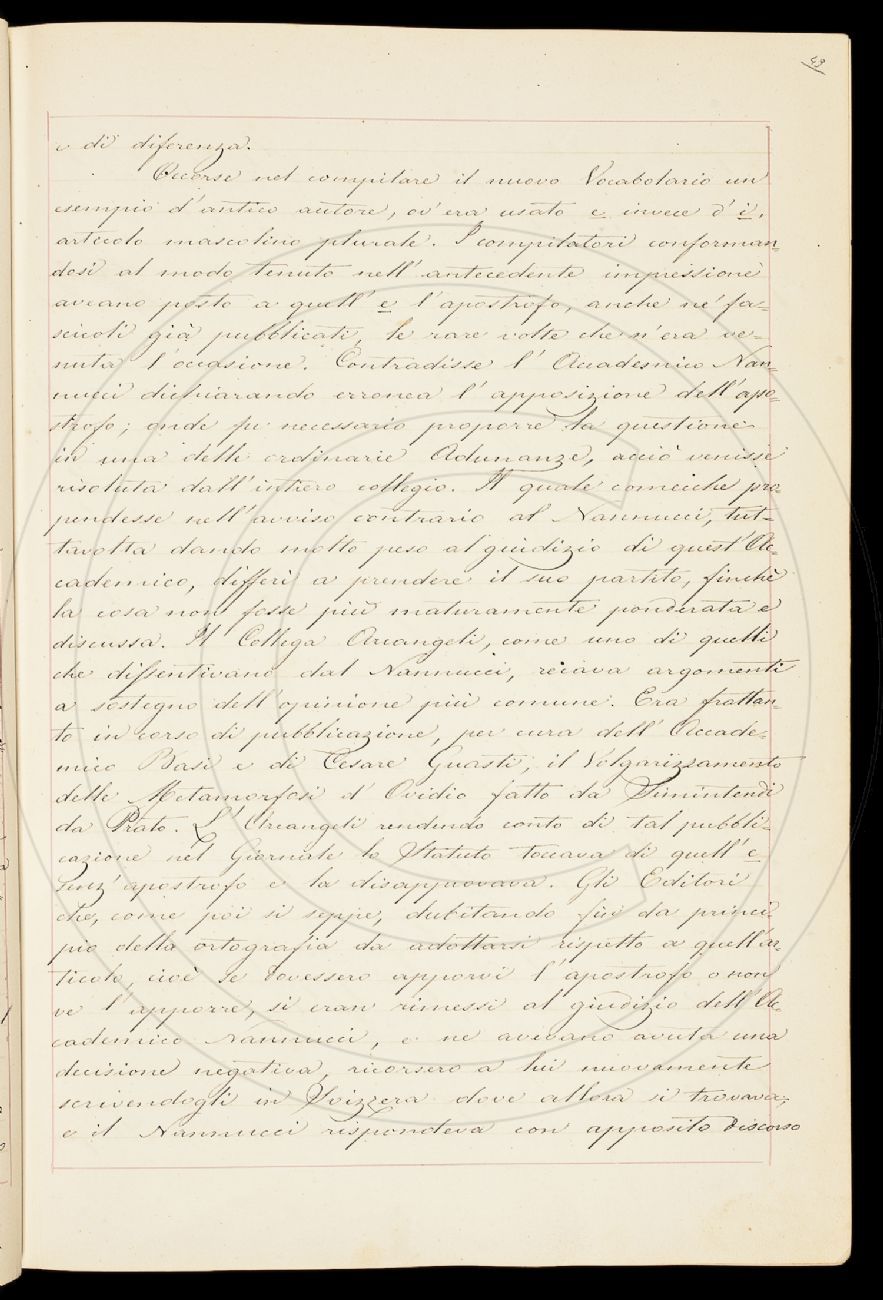 49
e di diferenza.
Occorse nel compitare il nuovo Vocabolario un
esempio d'antico autore, ov'era usato e invece d' i,
articolo mascolino plurale. I compilatori conforman-
dosi al modo tenuto nell'antecedente impressione
aveano posto a quell' e l'apostrofo, anche ne' fa-
scicoli già pubblicati, le rare volte che n'era ve-
nuta l'occasione. Contradisse l'Accademico Nan-
nucci dichiarando erronea l'apposizione dell'apo-
strofo; onde fu necessario proporre la questione
in una delle ordinarie Adunanze, acciò venisse
risoluta dall'intiero collegio. Il quale comeiche pro-
pendesse nell'avviso contrario al Nannucci, tut-
tavolta dando molto peso al guidizio di quest'Ac-
cademico, differì a prendere il suo partito, finchè
la cosa non fosse più maturamente ponderata e
discussa. Il Collega Arcangeli, come uno di quelli
che dissentivano dal Nannucci, recava argomenti
a sostegno dell'opinione più comune. Era frattan-
to in corso di pubblicazione, per cura dell'Accade-
mico Basi e di Cesare Guasti, il Volgarizzamento
delle Metamorfosi d'Ovidio fatto da Simintendi
da Prato. L'Arcangeli rendendo conto di tal pubbli-
cazione nel Giornale lo Statuto toccava di quell' e
senz'apostrofo e la disapprovava. Gli Editori
che, come poi si seppe, dubitando fin da princi-
pio della ortografia da adottarsi rispetto a quell'ar-
ticolo, cioè se dovessero apporvi l'apostrofo o non
ve l'apporre, si eran rimessi al giudizio dell'Ac-
cademico Nannucci, e ne avevano avuta una
decisione negativa, ricorsero a lui nuovamente
scrivendogli in Svizzera dove allora si trovava;
e il Nannucci rispondeva con apposito discorso